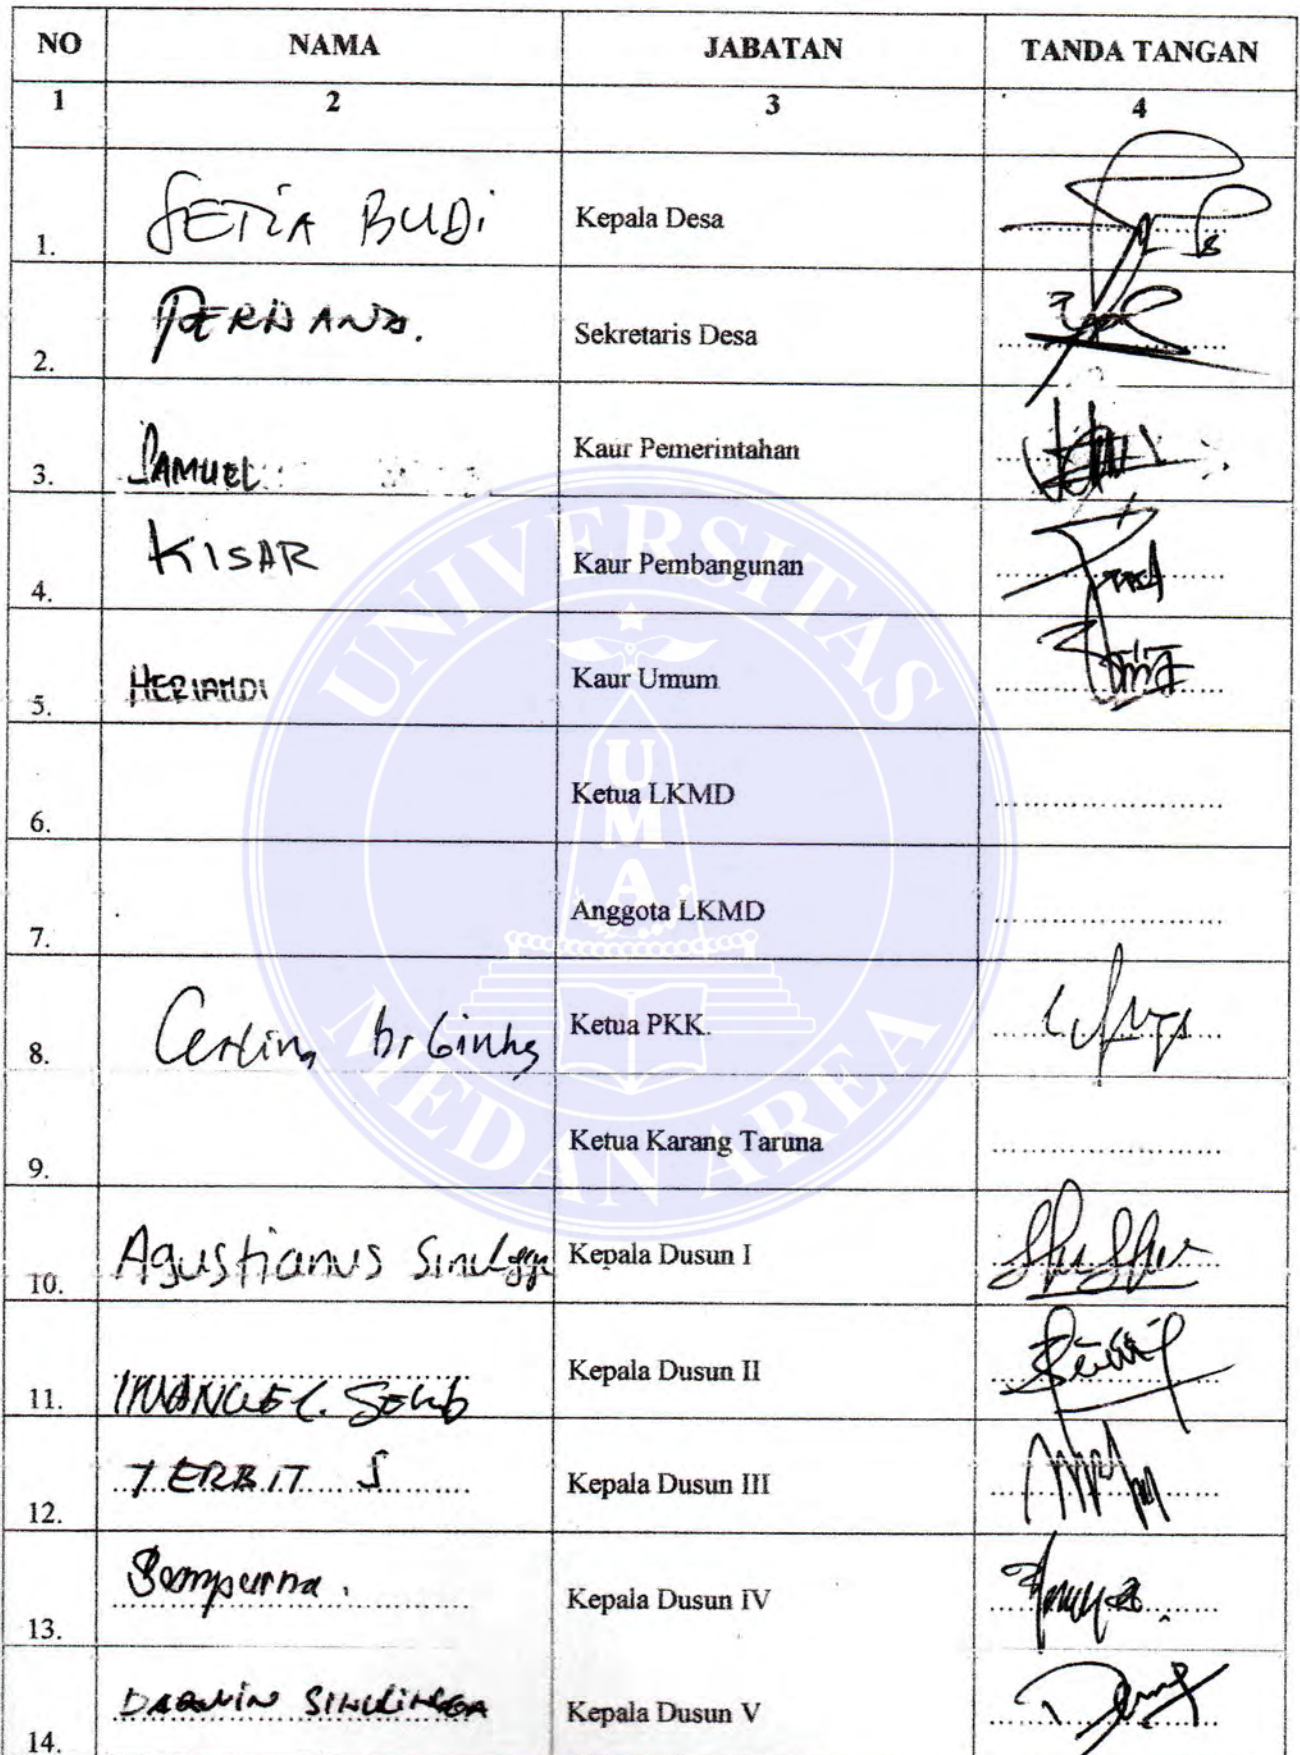 NO NAMA JABATAN TANDA TANGAN
1 2 3 4
1. SETIA BUDI Kepala Desa
2. Sekretaris Desa
3. SAMUEL Kaur Pemerintahan
4. KISAR Kaur Pembangunan
5. Kaur Umum
6. Ketua LKMD
7. Anggota LKMD
8. br Ginting Ketua PKK.
9. Ketua Karang Taruna
10. Agustianus Kepala Dusun I
11. Kepala Dusun II
12. TERBIT S Kepala Dusun III
13. Sempurna. Kepala Dusun IV
14. DARWIN SINULINGGA Kepala Dusun V
UNIVERSITAS
UMA
MEDAN AREA